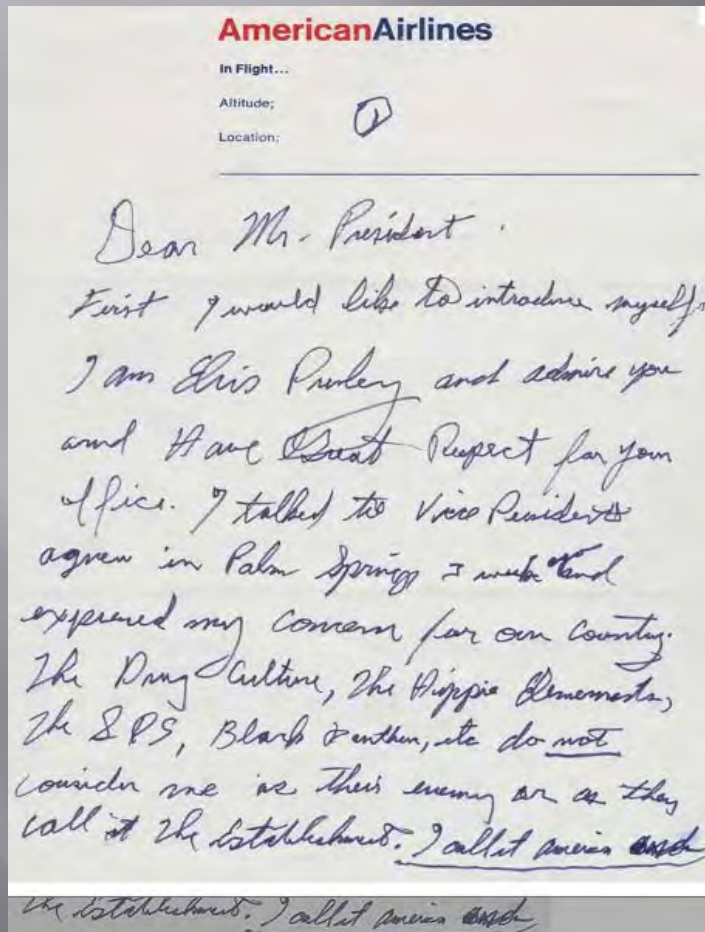 AmericanAirlines
In Flight...
Altitude;
Location;
1
Dear Mr. President.
First I would like to introduce myself.
I am Elvis Presley and admire you
and Have Great Respect for your
office. I talked to Vice President
agnew in Palm Springs 3 weeks and
expressed my concern for our country.
The Drug Culture, The Hippie Elements,
The SDS, Black Panthers, etc do not
consider me as their enemy or as they
call it The Establishment. I call it america and
the Establishment. I call it america and